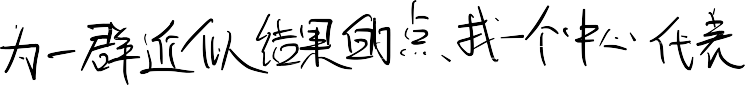 为一群近似结果的点、找一个中心代表